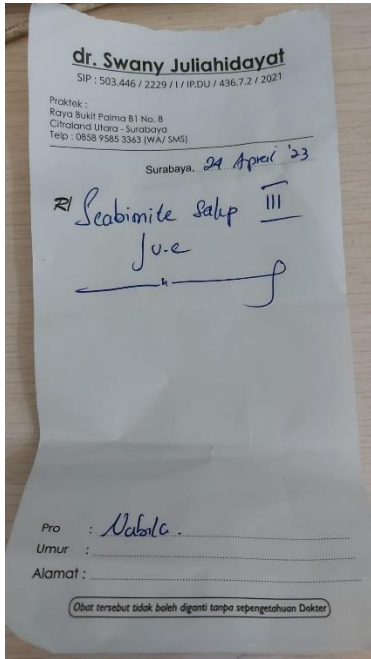 dr. Swany Juliahidayat
SIP : 503.446 / 2229 / I / IP.DU / 436.7.2 / 2021
Praktek :
Raya Bukit Palma B1 No. 8
Citraland Utara - Surabaya
Telp : 0858 9585 3363 (WA/ SMS)
Surabaya, 24 April '23
R/ Scabimite Salep III
∫ u.e
Pro : Nabila.
Umur :
Alamat :
Obat tersebut tidak boleh diganti tanpa sepengetahuan Dokter